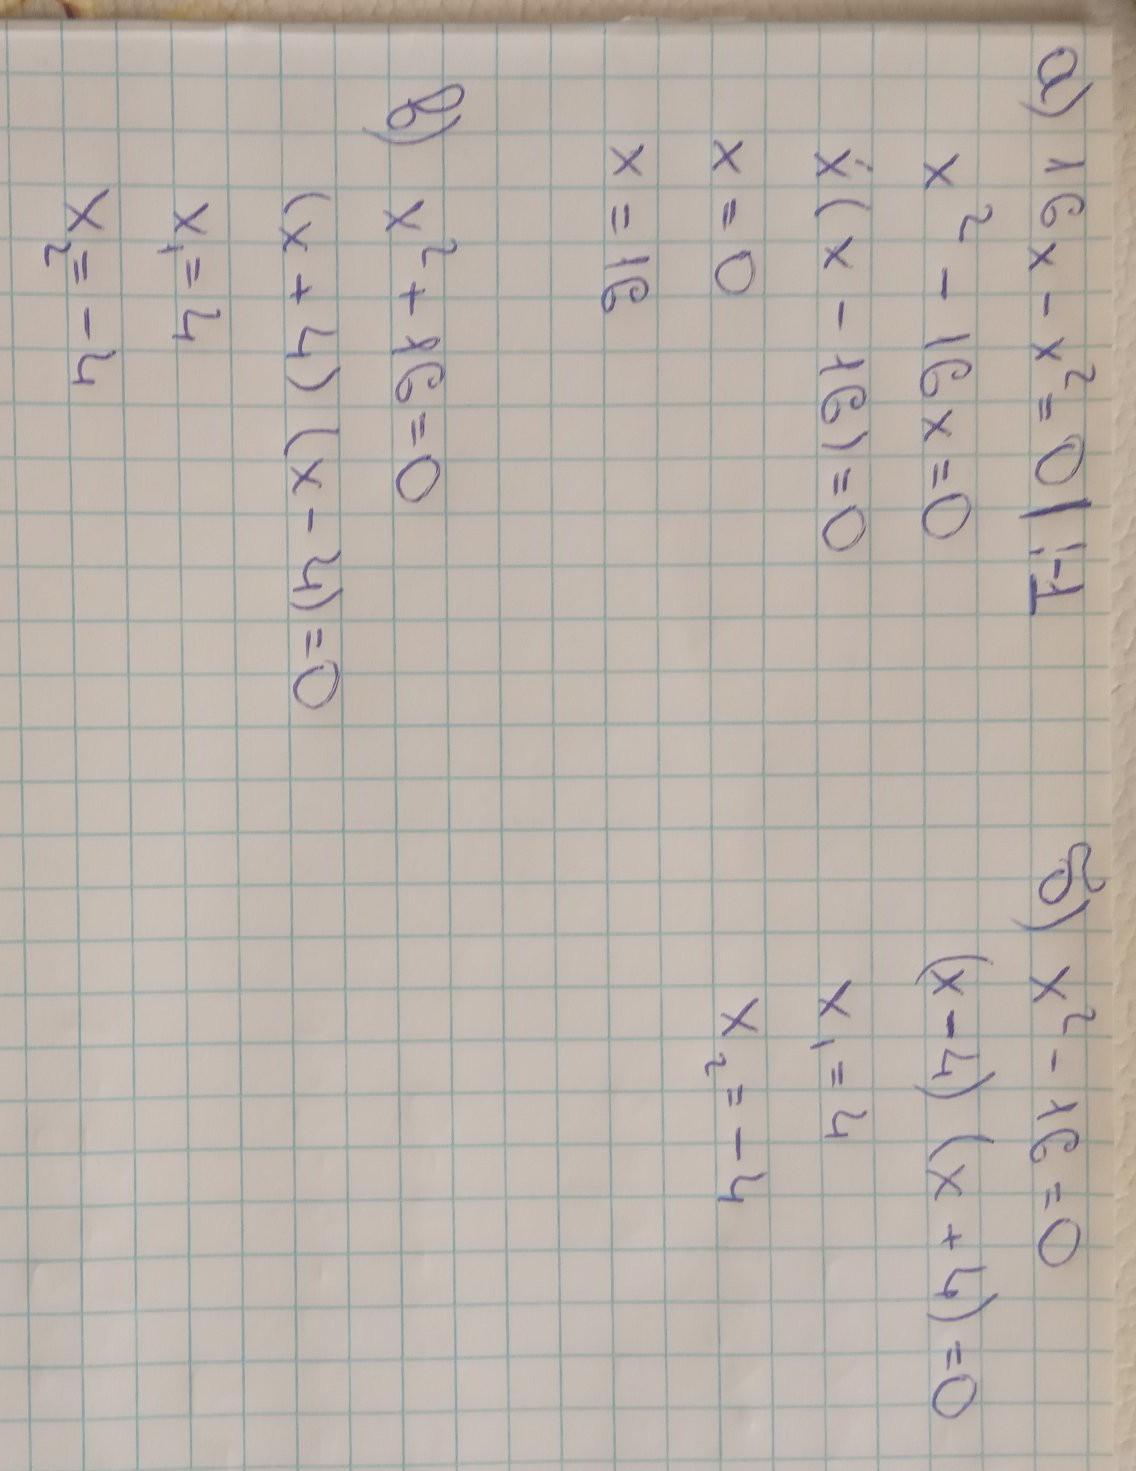 а) 16x - x² = 0 | :-1
x² - 16x = 0
x(x - 16) = 0
x = 0
x = 16
б) x² - 16 = 0
(x - 4) (x + 4) = 0
x₁ = 4
x₂ = -4
в) x² + 16 = 0
(x + 4) (x - 4) = 0
x₁ = 4
x₂ = -4